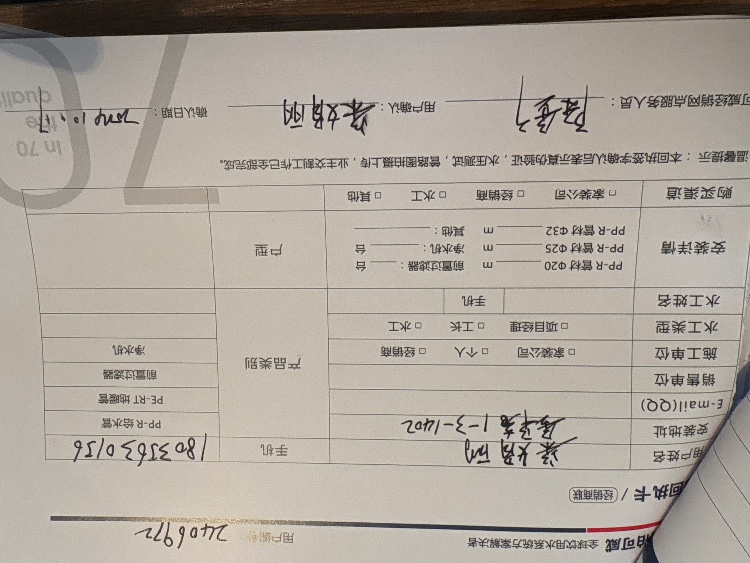 铂可威 全球饮用水系统方案解决者 用户编号 2406972
回执卡 / 经销商联
用户姓名 手机 18035630156
安装地址 1-3-1402 PP-R 给水管
E-mail(QQ) PE-RT 地暖管
销售单位 前置过滤器
施工单位 □ 家装公司 □ 个人 □ 经销商 产品类别 净水机
水工类型 □ 项目经理 □ 工长 □ 水工
水工姓名 手机
安装详情 PP-R 管材 Φ20 m 前置过滤器： 台 户型
PP-R 管材 Φ25 m 净水机： 台
PP-R 管材 Φ32 m 其他：
购买渠道 □ 家装公司 □ 经销商 □ 水工 □ 其他
温馨提示：本回执签字确认后表示真伪验证，水压测试，管路图拍摄上传，业主交割工作已全部完成。
可威经销网点服务人员： 用户确认： 确认日期：
In 70
the
quali
70